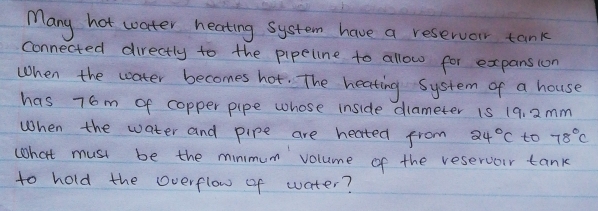 Many hot water heating System have a reservoir tank
Connected directly to the pipeline to allow for expansion
When the water becomes hot. The heating System of a house
has 76m of copper pipe whose inside diameter is 19.2mm
When the water and pipe are heated from 24°C to 78°C
What must be the minimum volume of the reservoir tank
to hold the Overflow of water?